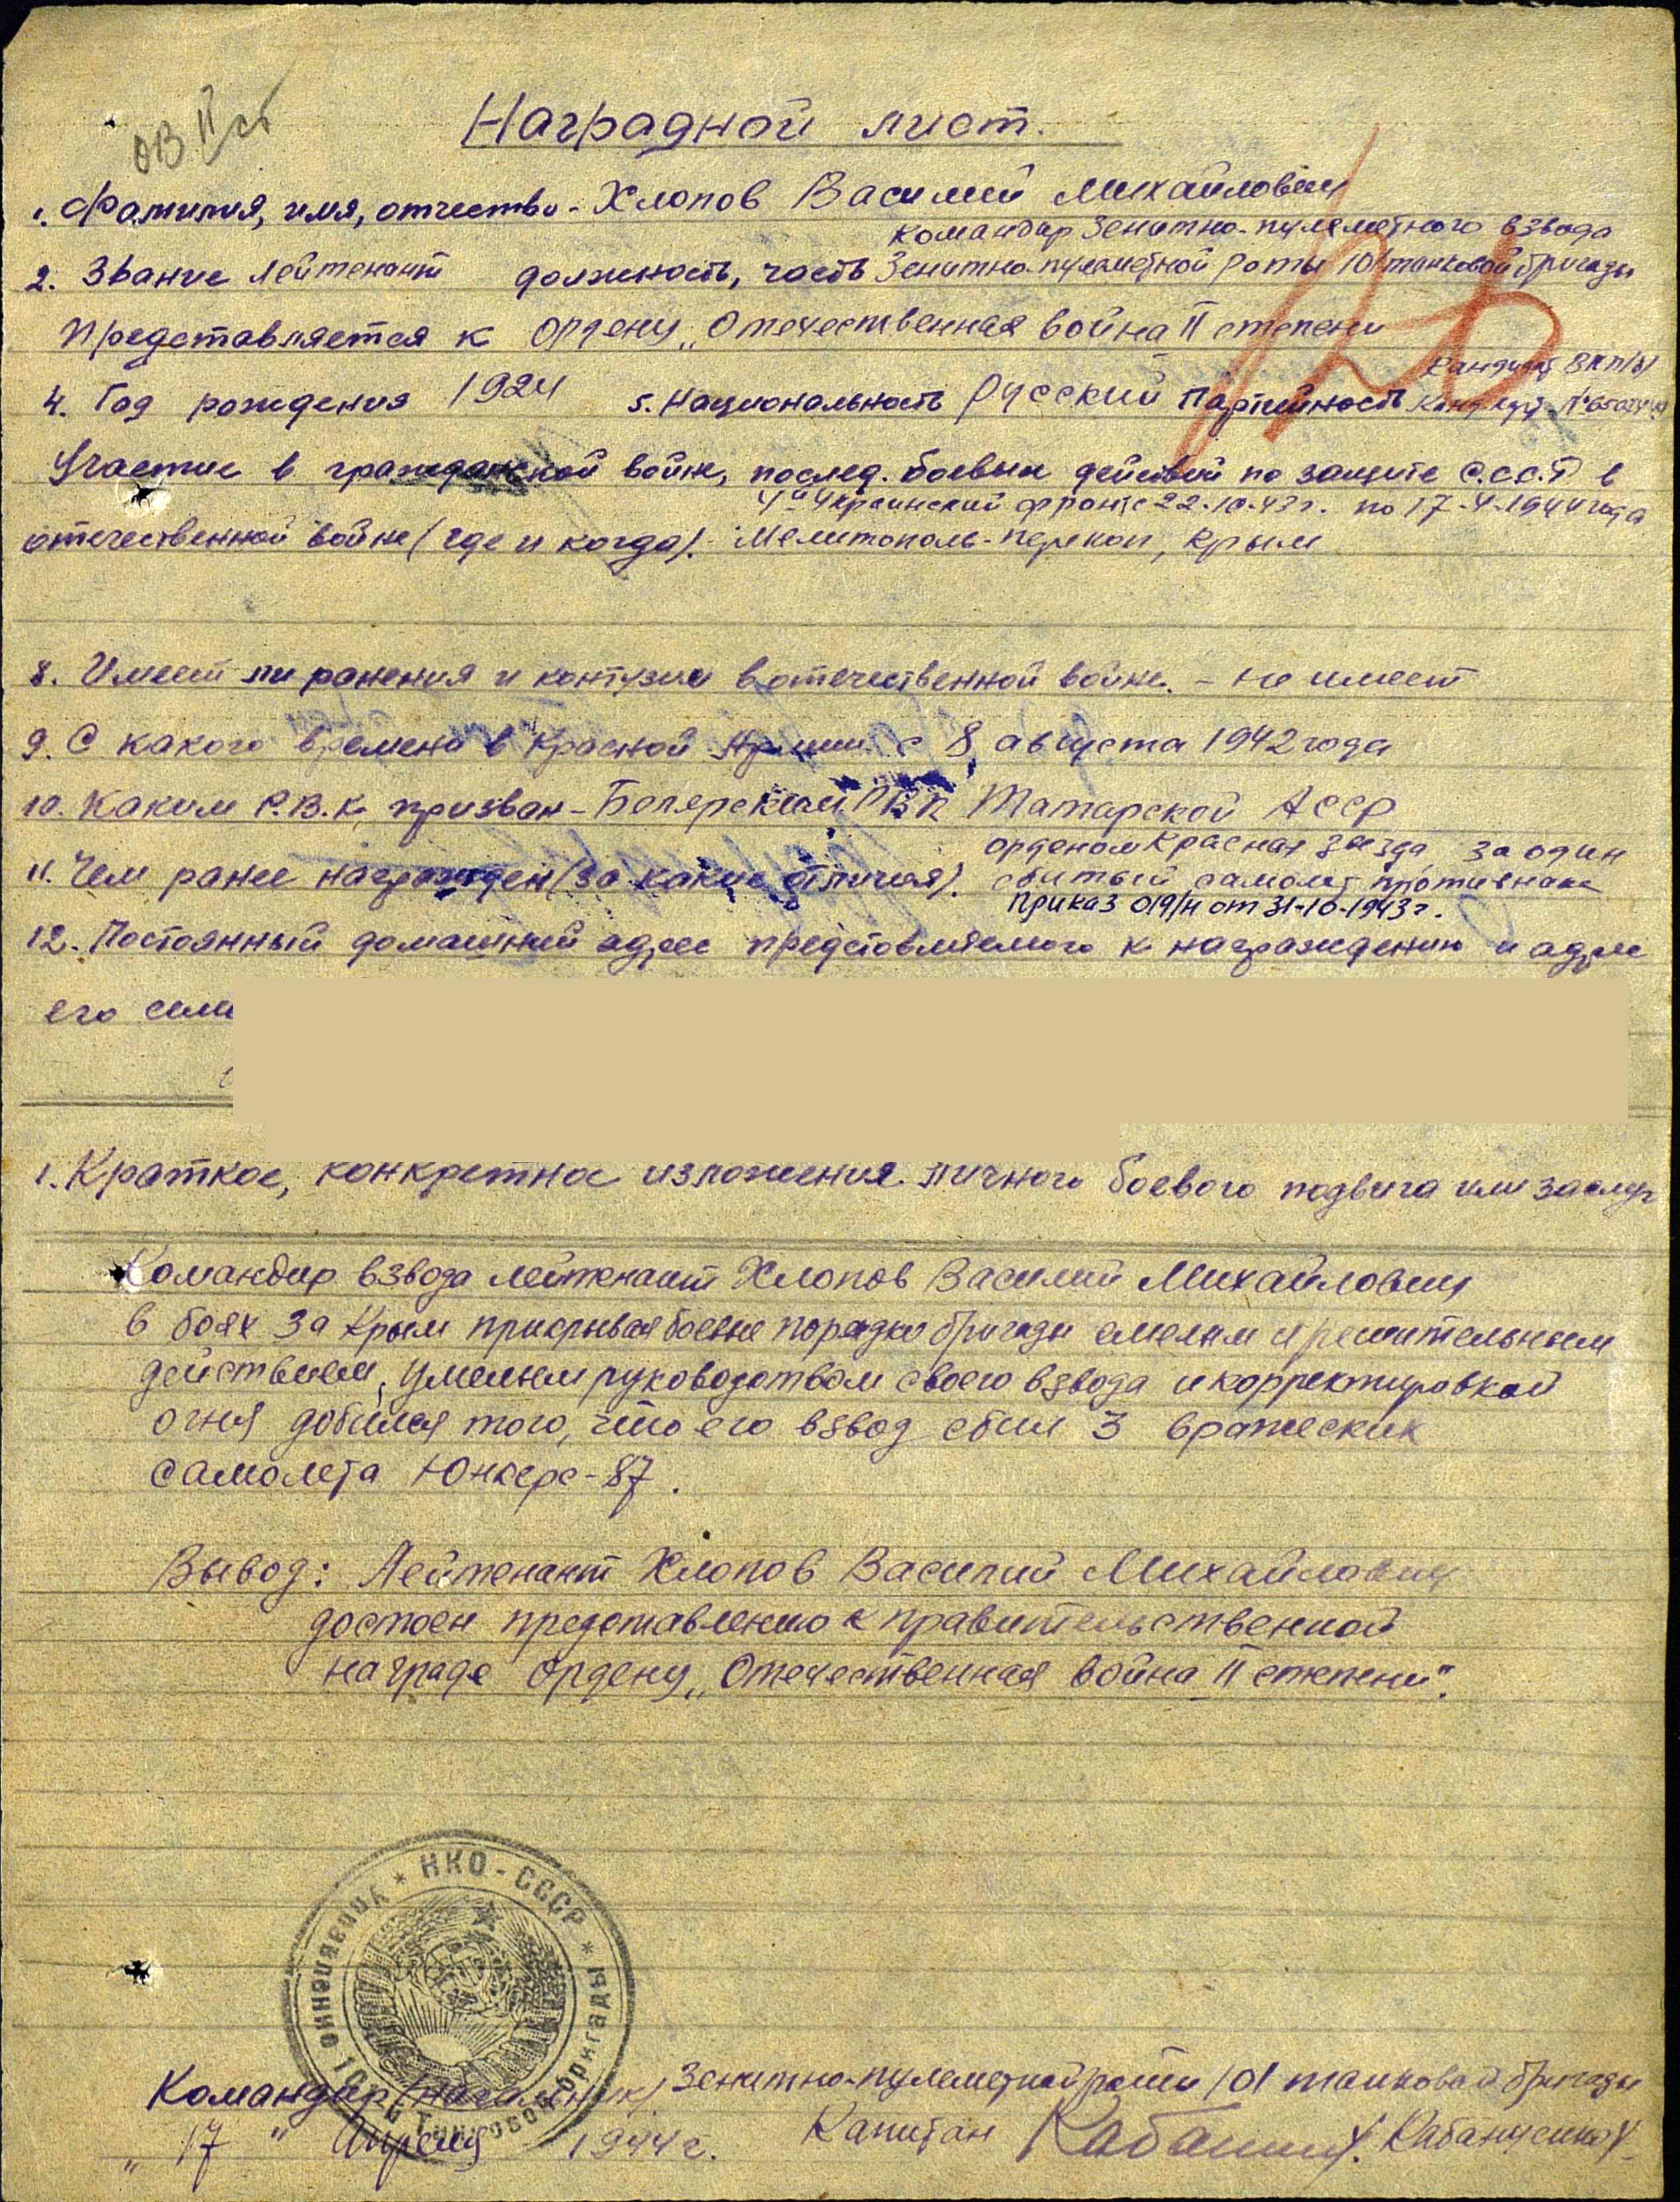 ОВ II ст
Наградной лист.
1. Фамилия, имя, отчество - Хлопов Василий Михайлович
командир Зенитно-пулеметного взвода
2. Звание лейтенант должность, часть Зенитно-пулеметной роты 101 танковой бригады
Представляется к ордену „Отечественная война II степени
Кандидат ВКП/б/
4. Год рождения 1924 5. Национальность Русский Партийность
Участие в гражданской войне, послед. боевых действий по защите С.С.С.Р в
4й Украинский фронт с 22.10.43г. по 17.4.1944 года
отечественной войне (где и когда). Мелитополь-Перекоп, Крым
8. Имеет ли ранения и контузии в отечественной войне. - не имеет
9. С какого времени в Красной Армии с 8 августа 1942 года
10. Каким Р.В.К. призван - РВК Татарской АССР
орденом Красная звезда за один
11. Чем ранее награжден (за какие отличия). сбитый самолет противника
Приказ 019/н от 31-10-1943г.
12. Постоянный домашний адрес представляемого к награждению и адрес
его семи
1. Краткое, конкретное изложения личного боевого подвига или заслуг
Командир взвода лейтенант Хлопов Василий Михайлович
в боях за Крым прикрывая боевые порядки бригады смелым и решительным
действием, умелым руководством своего взвода и корректировкой
огня добился того, что его взвод сбил 3 вражеских
самолета Юнкерс-87.
Вывод: Лейтенант Хлопов Василий Михайлович
достоен представлению к правительственной
награде ордену „Отечественная война II степени".
* НКО - СССР * Управление 101 й Танковой бригады
Командир (начальник) Зенитно-пулеметной роты 101 танковой бригады
„17" Апреля 1944г. Капитан